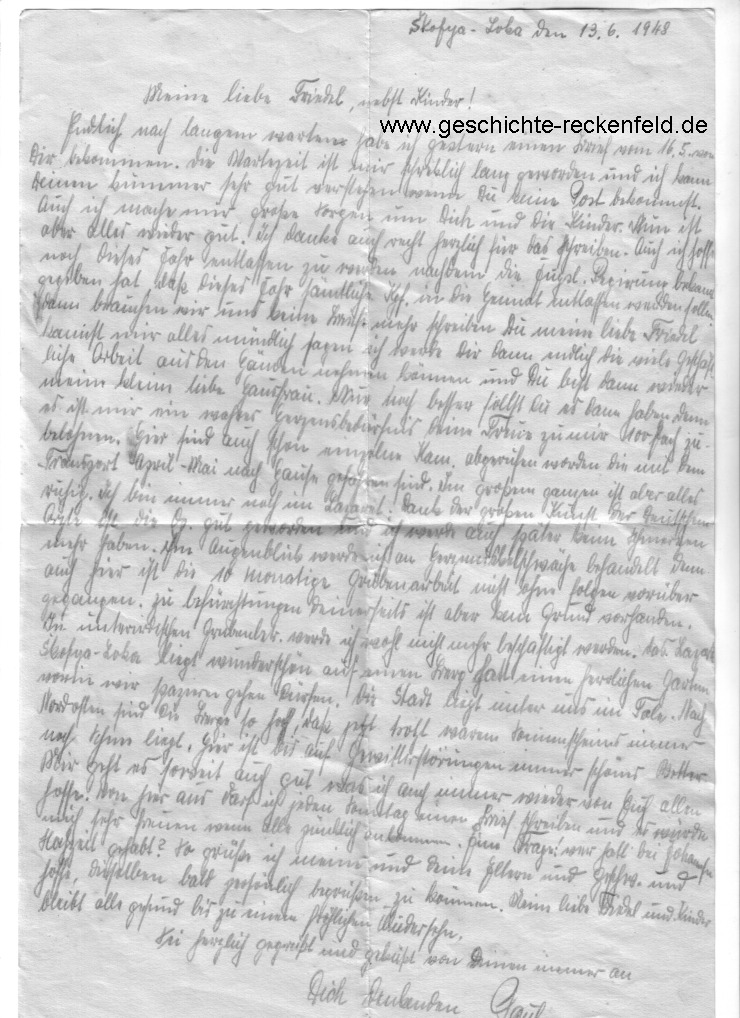 Skofya-Loka den 13.6.1948
Meine liebe Friedel, nebst Kinder!
www.geschichte-reckenfeld.de
Endlich nach langem warten habe ich gestern einen Brief vom 16.5. von
Dir bekommen. Die Wartezeit ist mir schrecklich lang geworden und ich kann
Deinen Kummer sehr gut verstehen wenn Du keine Post bekommst.
Auch ich mache mir große Sorgen um Dich und die Kinder. Nun ist
aber alles wieder gut. Ich danke auch recht herzlich für das Schreiben. Auch ich hoffe
noch dieses Jahr entlassen zu werden nachdem die Jugsl. Regierung bekannt
gegeben hat daß dieses Jahr sämtliche Kgf. in die Heimat entlassen werden sollen
Dann brauchen wir uns keine Briefe mehr schreiben Du meine liebe Friedel
kannst mir alles mündlich sagen ich werde Dir dann endlich die viele
liche Arbeit aus den Händen nehmen können und Du bist dann wieder
meine kleine liebe Hausfrau. Nur noch besser sollst Du es dann haben denn
es ist mir ein wahres Herzensbedürfnis Deine Treue zu mir zu
belohnen. Hier sind auch schon einzelne Kam. abgerufen worden die mit dem
Transport April-Mai nach Hause gefahren sind. Im großem ganzen ist aber alles
ruhig. Ich bin immer noch im Lazaret. Dank der großen Kunst der Deutschen
Ärzte ist die Op. gut geworden und ich werde auch später keine Schmerzen
mehr haben. Im Augenblick werde ich an Herzmuskelschwäche behandelt denn
auch hier ist die 10 monatige Grubenarbeit nicht ohne folgen vorüber
gegangen. zu befürchtungen Deinerseits ist aber kein Grund vorhanden.
In unterirdischen werde ich wohl nicht mehr beschäftigt werden. Das Lazaret
Skofya-Loka liegt wunderschön auf einen Berg hat einen herrlichen Garten
worin wir spazieren gehen dürfen. Die Stadt liegt unter uns im Tale. Nach
Nordosten sind die Berge so hoch, daß jetzt trotz warem Sonnenscheins immer
noch Schnee liegt. Hier ist bis auf Gewitterstörungen immer schönes Wetter
Mir geht es soweit auch gut was ich auch immer wieder von Euch allen
hoffe. Von hier aus darf ich jeden Sonntag einen Brief schreiben und es würde
mich sehr freuen wenn alle pünktlich ankommen. Eine Frage: wer hatt bei
Hochzeit gehabt? So grüße ich meine und Deine Eltern und Geschw. und
hoffe, dieselben bald persönlich begrüßen zu können. Meine liebe Friedel und Kinder
bleibt alle gesund bis zu einem fröhlichen Wiedersehn.
Sei herzlich gegrüßt und geküßt von Deinen immer an
Dich denkenden Paul